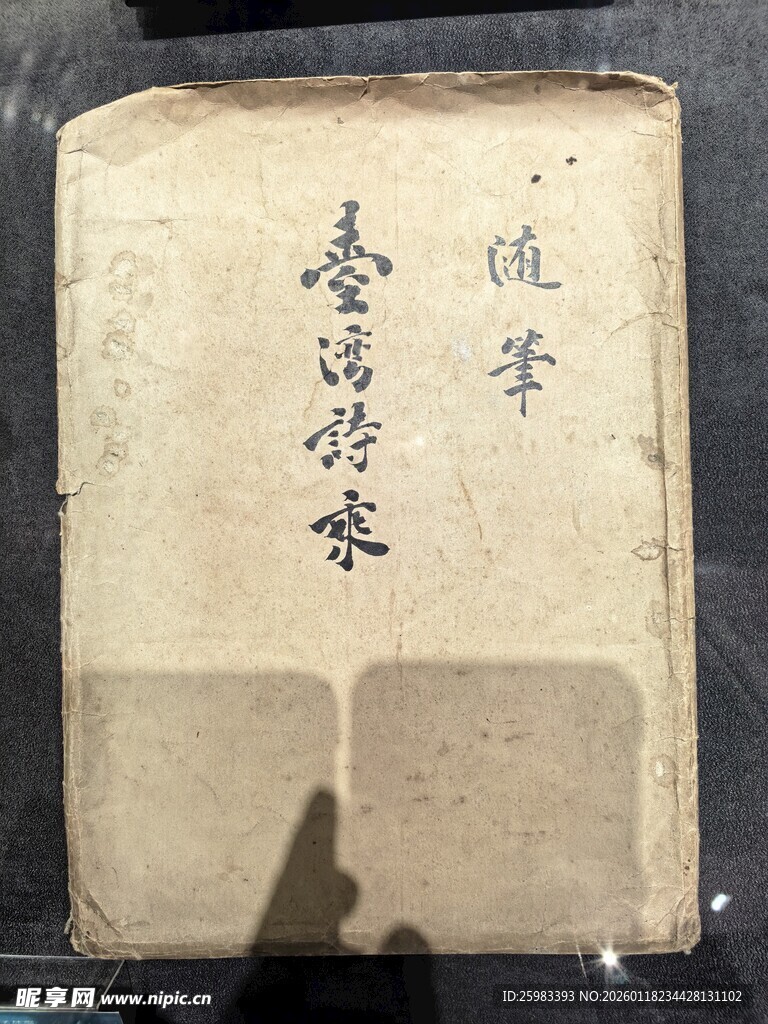 随筆
臺湾詩乘
昵享网 www.nipic.cn
ID:25983393 NO:20260118234428131102